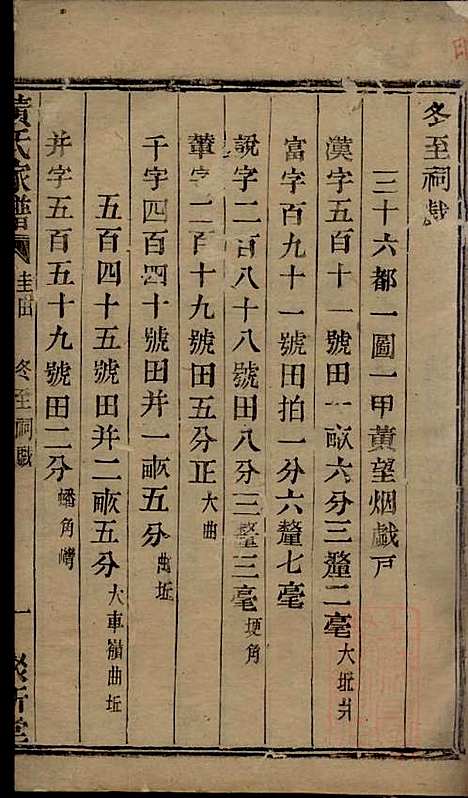 冬至祠戲
三十六都一圖一甲黃望烟戲戶
漢字五百十一號田一畝六分三釐二毫 大坵丼
富字百九十一號田拍一分六釐七毫
說字二百八十八號田八分三釐三毫 埂角
輦字二百十九號田五分正 大曲
千字四百四十號田并一畝五分 曲坵
五百四十五號田并二畝五分 大車嶺曲坵
并字五百五十九號田二分 蟠角塝
黃氏家譜 圭田 冬至祠戲 一